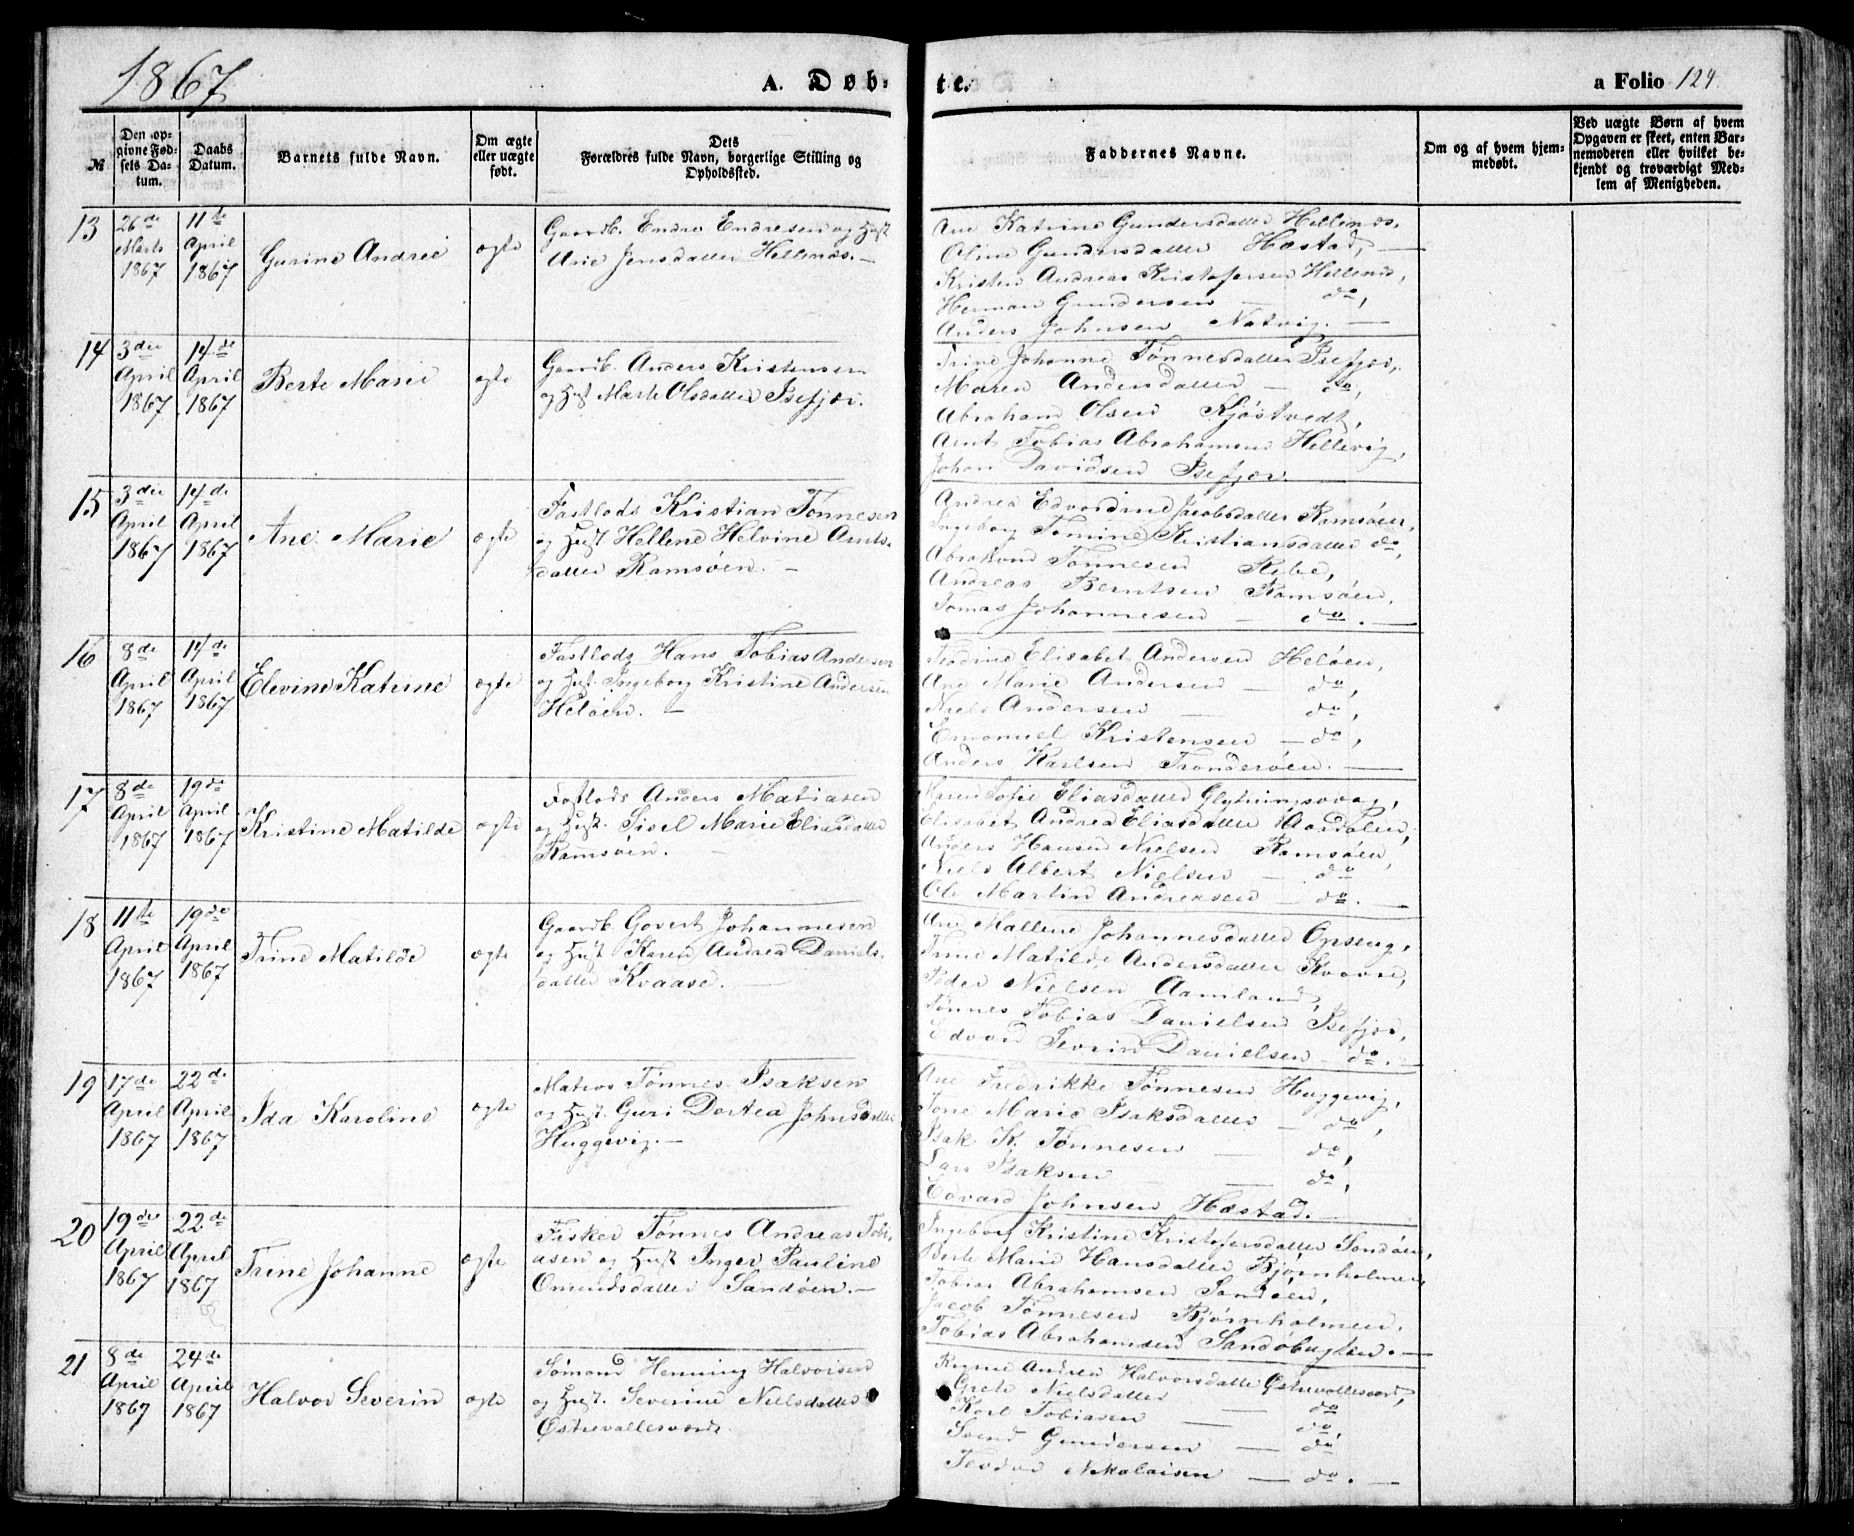 1867
A. Døb-
te.
a Folio 124.
№
Den op-
givne Fød-
sels Da-
tum.
Daabs
Datum.
Barnets fulde Navn.
Om ægte
eller uægte
født.
Dets
Forældres fulde Navn, borgerlige Stilling og
Opholdssted.
Faddernes Navne.
Om og af hvem hjem-
medøbt.
Ved uægte Børn af hvem
Opgaven er skeet, enten Bar-
nemoderen eller hvilket be-
kjendt og troværdigt Med-
lem af Menigheden.
13
26de
Marts
1867
11te
April
1867
Gurine Andrei
ægte
Gaardb. Endre Endresen og Hust
Jensdatter Hellenæs. —
Ane Katrine Gundersdatter Hellenæs,
Oline Gundersdatter Hæstad, —
Kristen Andreas Kristofersen Hellenæs,
Herman Gundersen — do,
Anders Johnsen Natvig. —
14
3die
April
1867
14de
April
1867
Berte Marie
ægte
Gaardb. Anders Kristensen
og Hust Marte Olsdatter Isefjær.
Trine Johanne Tønnesdatter Isefjær,
Maren Andersdatter — do,
Abraham Olsen Kjøstvedt,
Arnt Tobias Abrahamsen Hellevig,
Johan Davidsen Isefjær.
15
3die
April
1867
14de
April
1867
Ane Marie
ægte
Fastlods Kristian Tønnesen
og Hust Hellene Helvine Arnts-
datter Ramsøen. —
Andrea Edvardine Jacobsdatter Ramsøen,
Ingeborg Tomine Kristiansdatter do,
Tønnesen Ribe,
Andreas Berntsen Ramsøen,
Tomas Johannesen — do. —
16
8de
April
1867
14de
April
1867
Elevine Katrine
ægte
Fastlods Hans Tobias Andersen
og Hust. Ingeborg Kristine Andersen
Heløen. —
Elisabet Andersen Heløen,
Ane Marie Andersen — do,
Niels Andersen — do,
Emanuel Kristensen — do,
Anders Karlsen Trønderøen. —
17
8de
April
1867
19de
April
1867
Kristine Matilde
ægte
Fastlods Anders Matiasen
og Hust. Sisel Marie Eliasdatter
Ramsøen. —
Maren Sofie Eliasdatter
Elisabet Andrea Eliasdatter Aardalen,
Anders Hansen Nielsen Ramsøen,
Niels Albert Nielsen — do
Ole Martin Andreasen — do. —
18
11te
April
1867
19de
April
1867
Trine Matilde
ægte
Gaardb. Govert Johannesen
og Hust Karen Andrea Daniels-
datter Kvaase. —
Ane Mallene Johannesdatter Opseng,
Trine Matilde Andersdatter
Peder Nielsen Aamland,
Tønnes Tobias Danielsen Isefjær,
Edvard Severin Danielsen — do. —
19
17de
April
1867
22de
April
1867
Ida Karoline
ægte
Matros Tønnes Isaksen
og Hust. Guri Dortea Johnsdatter
Huggevig. —
Ane Fredrikke Tønnesen Huggevig,
Tone Marie Isaksdatter — do,
Isak K. Tønnesen — do,
Lars Isaksen — do,
Edvard Johnsen Hæstad. —
20
19de
April
1867
22de
April
1867
Trine Johanne
ægte
Fisker Tønnes Andreas Tobi-
asen og Hust Inger Pauline
Omundsdatter Sandøen. —
Ingeborg Kristine Kristofersdatter Sandøen,
Berte Marie Hansdatter Bjørnholmen,
Tobias Abrahamsen Sandøen,
Jacob Tønnesen Bjørnholmen,
Tobias Abrahamsen Sandøbugten. —
21
8de
April
1867
24de
April
1867
Halvor Severin
ægte
Sømand Henning Halvorsen
og Hust. Severine Nielsdatter
Østrevallesværd.
Andrea Halvorsdatter Østrevallesverd,
Grete Nielsdatter — do
Karl Tobiasen — do,
Svend Gundersen — do
Teodor Nikolaisen — do. —